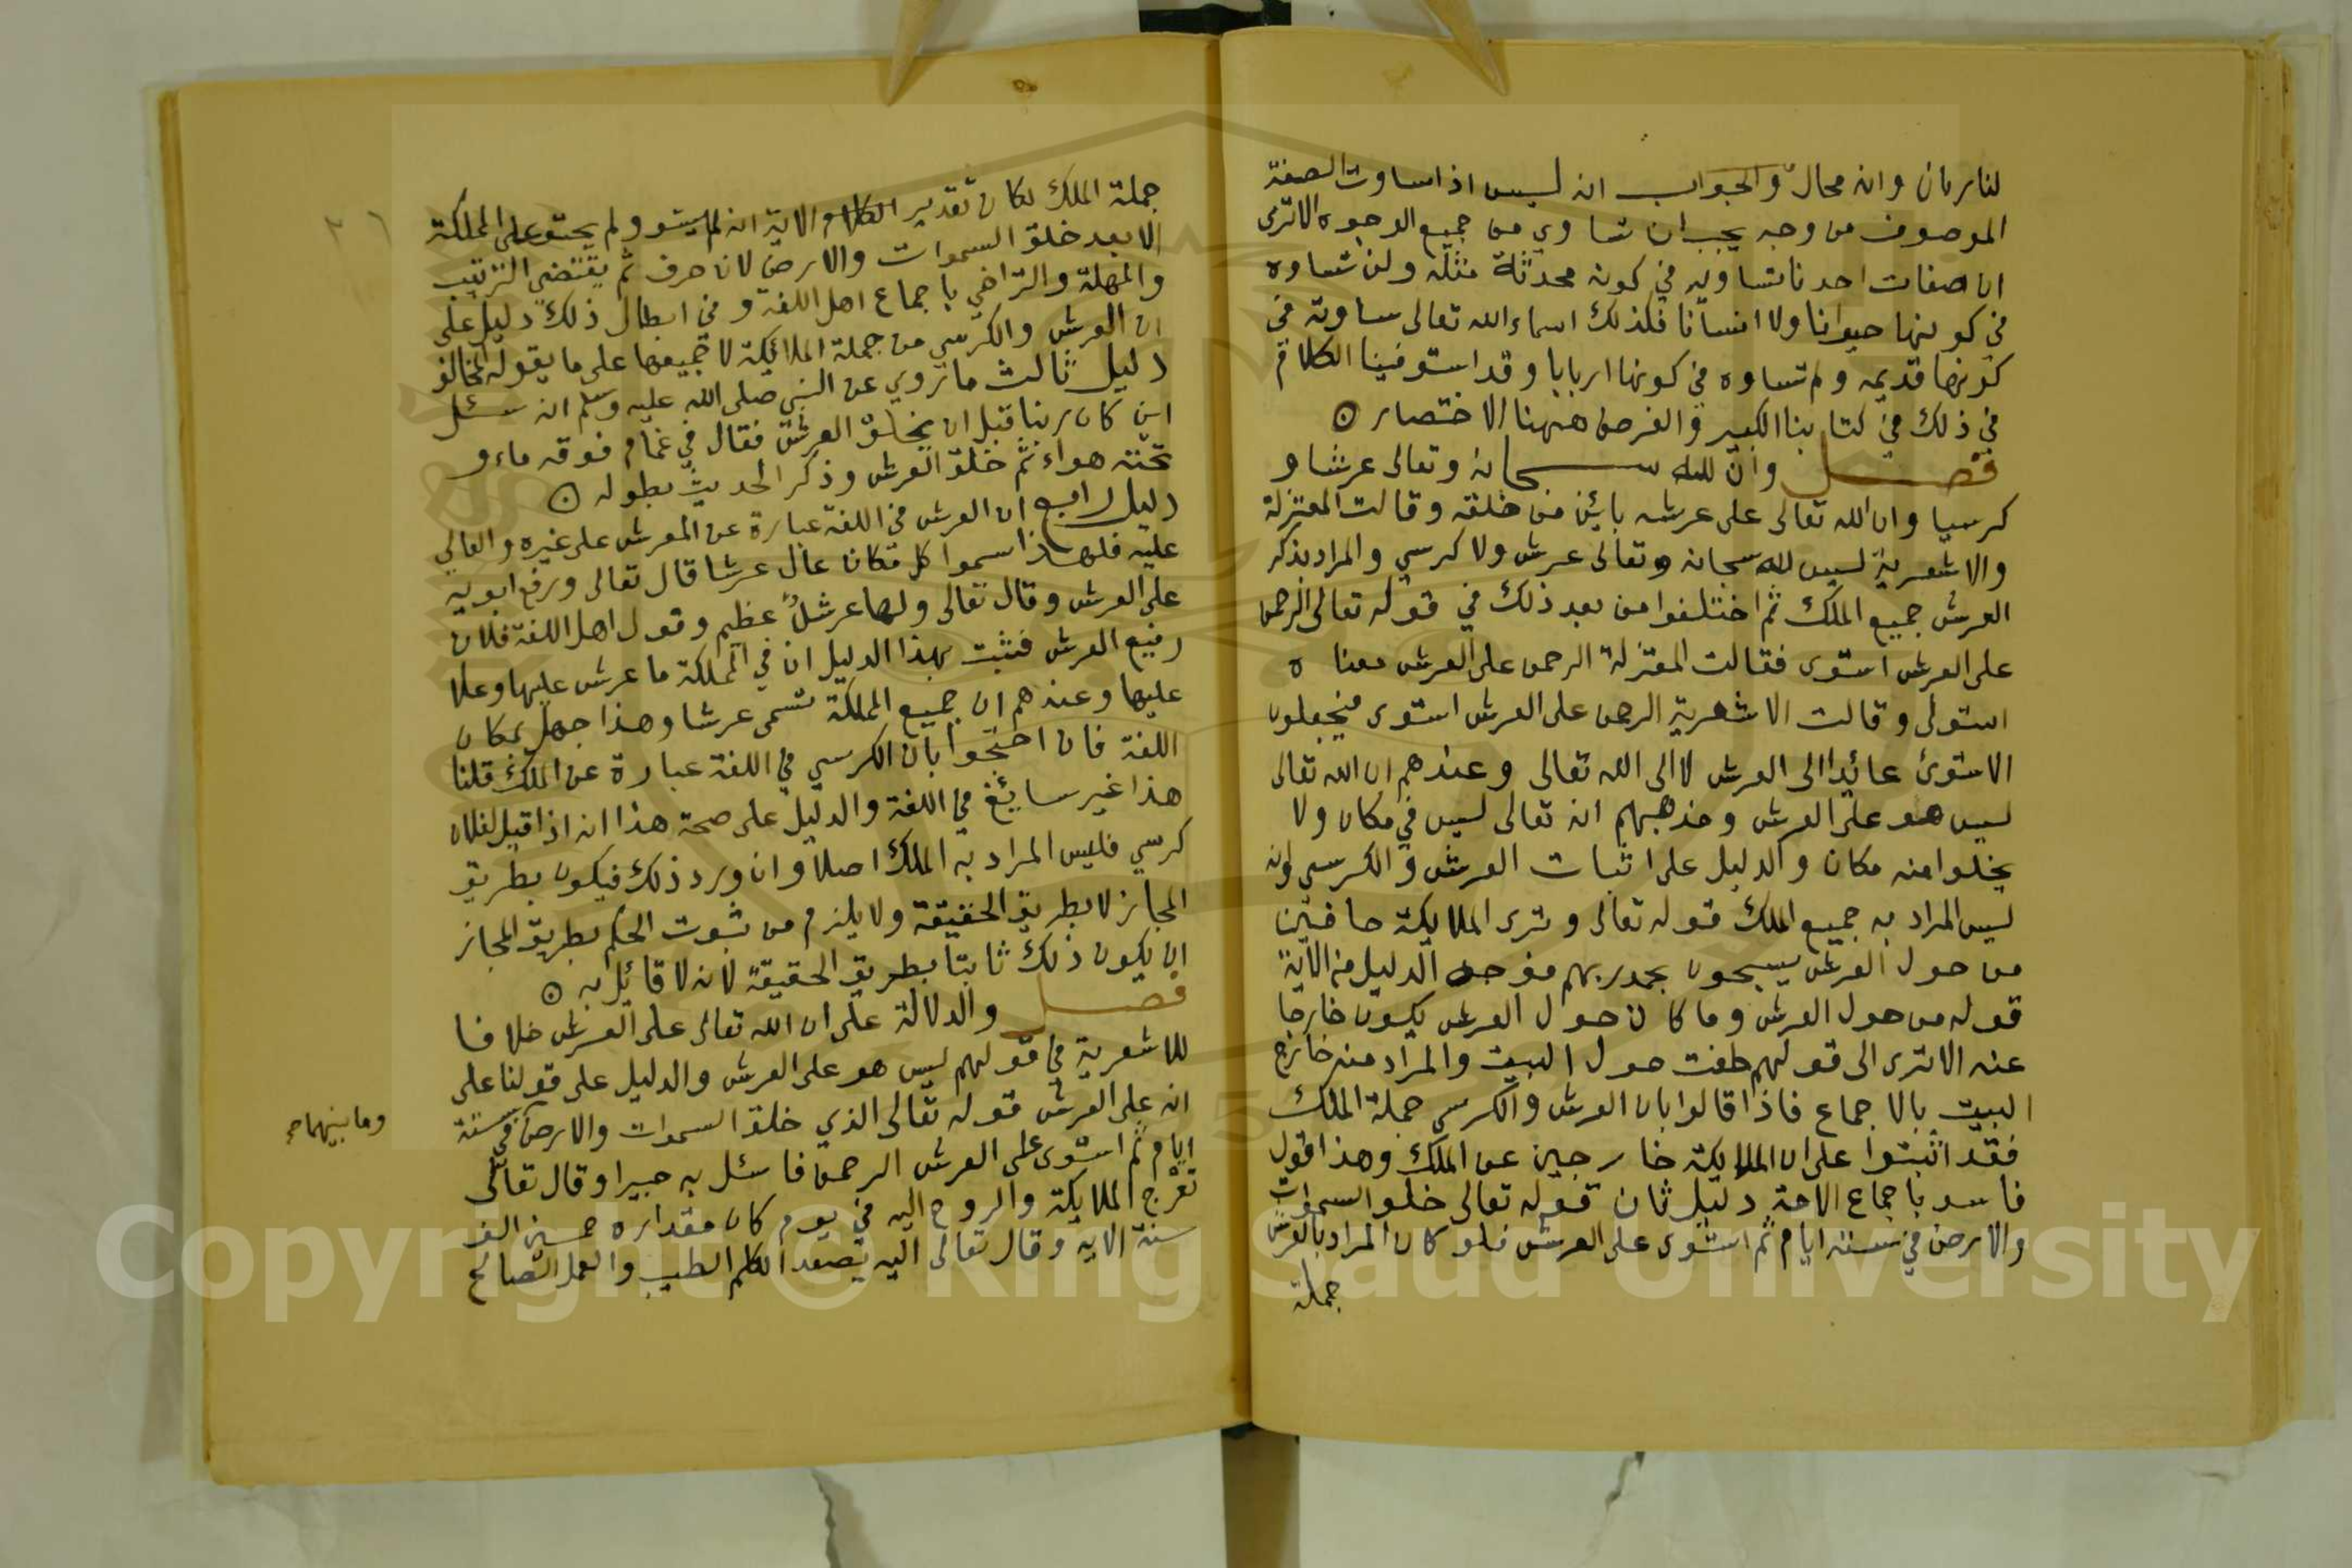 لنا ربان وانه محال والجواب انه ليس اذا ساوت الصفة
الموصوف من وجه يجب ان تساوي من جميع الوجوه الا ترى
ان صفات احدنا تساويه في كونه محدثة مثله ولن تساوه
في كونها حيوانا ولا انسانا فلذلك اسماء الله تعالى ساوته في
كونها قديمه ولم تساوه في كونها اربابا وقد استوفينا الكلام
في ذلك في كتابنا الكبير والغرض ههنا الاختصار ه
فصل وان لله سبحانه وتعالى عرشا و
كرسيا وان الله تعالى على عرشه بائن من خلقه وقالت المعتزلة
والاشعرية ليس لله سبحانه وتعالى عرش ولا كرسي والمراد بذكر
العرش جميع الملك ثم اختلفوا من بعد ذلك في قوله تعالى الرحمن
على العرش استوى فقالت المعتزلة الرحمن على العرش معناه
استولى وقالت الاشعرية الرحمن على العرش استوى فيجعلون
الاستوى عائدا الى العرش لا الى الله تعالى وعندهم ان الله تعالى
ليس هو على العرش ومذهبهم انه تعالى ليس في مكان ولا
يخلوا منه مكان والدليل على اثبات العرش والكرسي وانه
ليس المراد به جميع الملك قوله تعالى وترى الملايكة حافين
من حول العرش يسبحون بحمد ربهم فوجه الدليل من الآية
قوله من حول العرش وما كان حول العرش يكون خارجا
عنه الا ترى الى قولهم طفت حول البيت والمراد منه خارج
البيت بالاجماع فاذا قالوا بان العرش والكرسي جملة الملك
فقد اثبتوا على ان الملايكة خارجين عن الملك وهذا قول
فاسد باجماع الامة دليل ثان قوله تعالى خلق السموات
والارض في ستة ايام ثم استوى على العرش فلو كان المراد بالعرش
جملة
جملة الملك لكان تقدير الكلام والاية انه لم يستو ولم يحتو على المملكة
الا بعد خلق السموات والارض لان حرف ثم يقتضي الترتيب
والمهلة والتراخي باجماع اهل اللغة وفي ابطال ذلك دليل على
ان العرش والكرسي من جملة الملائكة لا جميعها على ما يقوله المخالف
دليل ثالث ما روي عن النبي صلى الله عليه وسلم انه سئل
اين كان ربنا قبل ان يخلق العرش فقال في غمام فوقه ماء و
تحته هواء ثم خلق العرش وذكر الحديث بطوله ه
دليل رابع ان العرش في اللغة عبارة عن المعرش على غيره والعالي
عليه فلهذا اسموا كل مكان عال عرشا قال تعالى ورفع ابويه
على العرش وقال تعالى ولها عرش عظيم وقول اهل اللغة فلان
رفيع العرش فثبت بهذا الدليل ان في المملكة ما عرش عليها وعلا
عليها وعندهم ان جميع المملكة تسمى عرشا وهذا جهل بمكان
اللغة فان احتجوا بان الكرسي في اللغة عبارة عن الملك قلنا
هذا غير سائغ في اللغة والدليل على صحة هذا انه اذا قيل لفلان
كرسي فليس المراد به الملك اصلا وان ورد ذلك فيكون بطريق
المجاز لا بطريق الحقيقة ولا يلزم من ثبوت الحكم بطريق المجاز
ان يكون ذلك ثابتا بطريق الحقيقة لانه لا قائل به ه
فصل والدلالة على ان الله تعالى على العرش خلافا
للاشعرية في قولهم ليس هو على العرش والدليل على قولنا على
انه على العرش قوله تعالى الذي خلق السموات والارض في ستة
وما بينهما صح
ايام ثم استوى على العرش الرحمن فاسئل به خبيرا وقال تعالى
تعرج الملايكة والروح اليه في يوم كان مقداره خمسين الف
سنة الايه وقال تعالى اليه يصعد الكلم الطيب والعمل الصالح
Copyright © King Saud University